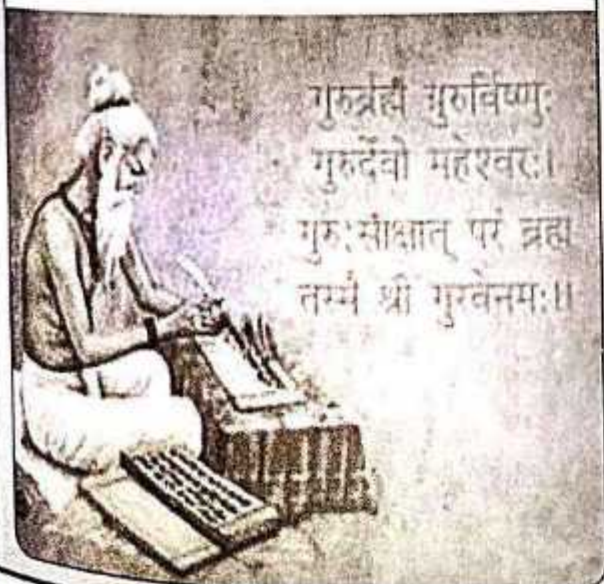 गुरुर्ब्रह्मा गुरुर्विष्णुः
गुरुर्देवो महेश्वरः।
गुरुःसाक्षात् परं ब्रह्म
तस्मै श्री गुरवेनमः।।